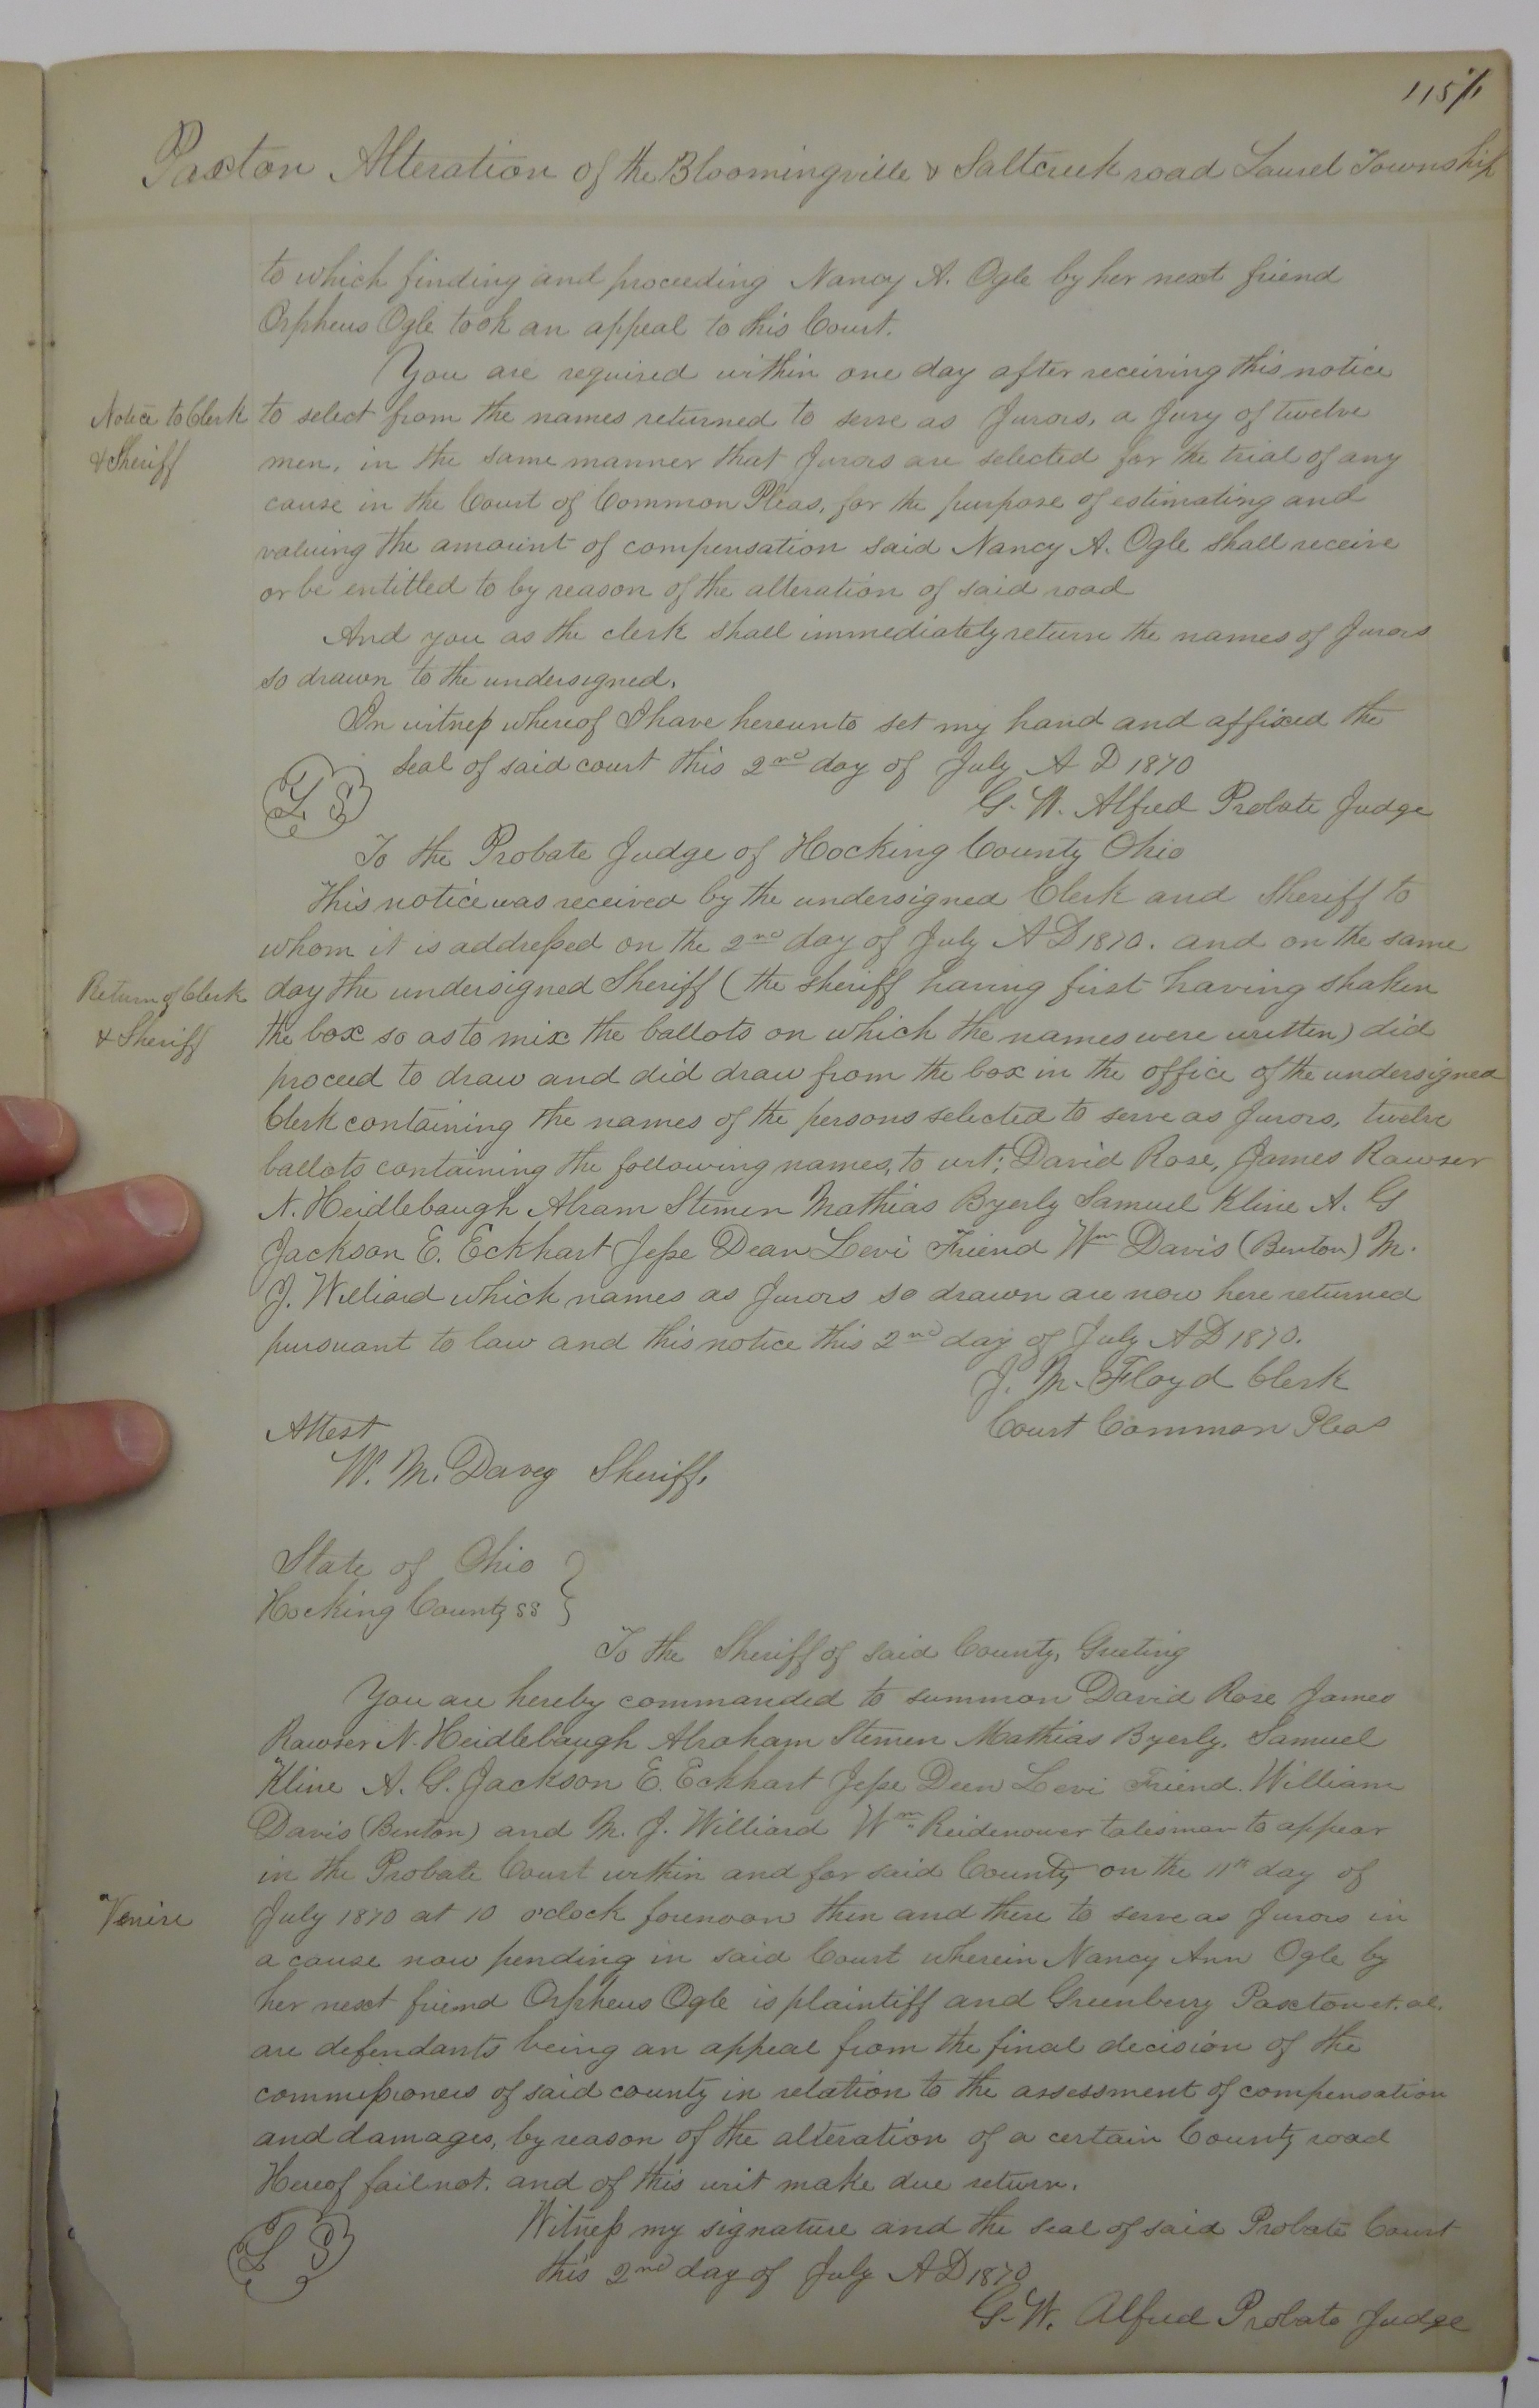 115 1/1
Paxton Alteration of the Bloomingville & Saltcreek road Laurel Township
to which finding and proceeding Nancy A. Ogle by her next friend
Orpheus Ogle took an appeal to this Court.
You are required within one day after receiving this notice
Notice to Clerk
& Sheriff
to select from the names returned to serve as Jurors, a Jury of twelve
men, in the same manner that Jurors are selected for the trial of any
cause in the Court of Common Pleas, for the purpose of estimating and
valuing the amount of compensation said Nancy A. Ogle shall receive
or be entitled to by reason of the alteration of said road
And you as the clerk shall immediately return the names of Jurors
so drawn to the undersigned.
In witness whereof I have hereunto set my hand and affixed the
seal of said court this 2nd day of July A D 1870
L S
G. W. Alfred Probate Judge
To the Probate Judge of Hocking County Ohio
This notice was received by the undersigned Clerk and Sheriff to
whom it is addressed on the 2nd day of July A D 1870. and on the same
Return of Clerk
& Sheriff
day the undersigned Sheriff (the sheriff having first having shaken
the box so as to mix the ballots on which the names were written) did
proceed to draw and did draw from the box in the office of the undersigned
Clerk containing the names of the persons selected to serve as Jurors, twelve
ballots containing the following names, to wit; David Rose, James Rawser
N. Heidlebaugh Abram Stemen Mathias Byerly Samuel Kline A. G
Jackson E. Eckhart Jesse Dean Levi Friend Wm Davis (Benton) M.
J. Williard which names as Jurors so drawn are now here returned
pursuant to law and this notice this 2nd day of July A D 1870.
J. M. Floyd Clerk
Court Common Pleas
Attest
W. M. Davey Sheriff.
State of Ohio }
Hocking County ss }
To the Sheriff of said County, Greeting
You are hereby commanded to summon David Rose James
Rawser N. Heidlebaugh Abraham Stemen Mathias Byerly. Samuel
Kline A. G. Jackson E. Eckhart Jesse Deen Levi Friend. William
Davis (Benton) and M. J. Williard Wm Reidenower talisman to appear
in the Probate Court within and for said County on the 11th day of
Venire
July 1870 at 10 o'clock forenoon then and there to serve as Jurors in
a cause now pending in said Court wherein Nancy Ann Ogle by
her next friend Orpheus Ogle is plaintiff and Greenberry Paxton et. al.
are defendants being an appeal from the final decision of the
commissioners of said county in relation to the assessment of compensation
and damages, by reason of the alteration of a certain County road
Hereof fail not. and of this writ make due return.
Witness my signature and the seal of said Probate Court
L S
this 2nd day of July A D 1870
G. W. Alfred Probate Judge